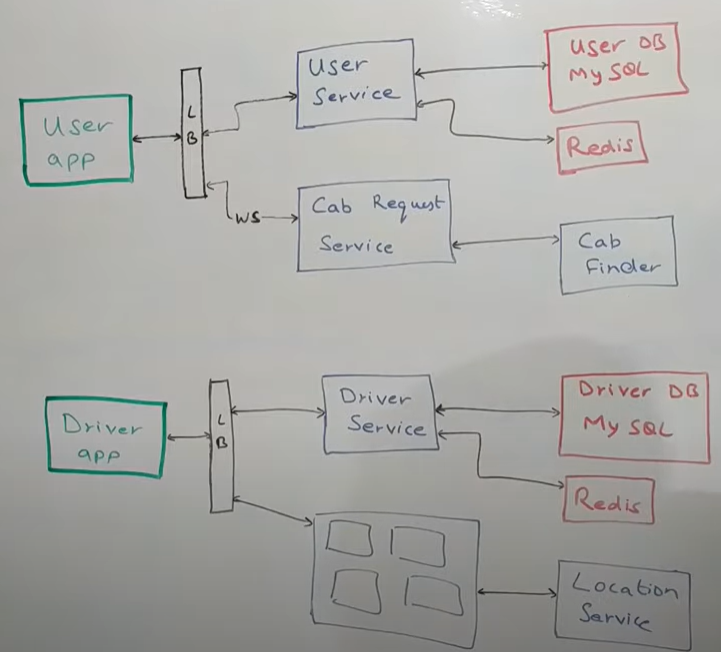 User
app
L
B
User
Service
User DB
MySQL
Redis
WS
Cab Request
Service
Cab
Finder
Driver
app
L
B
Driver
Service
Driver DB
MySQL
Redis
Location
Service